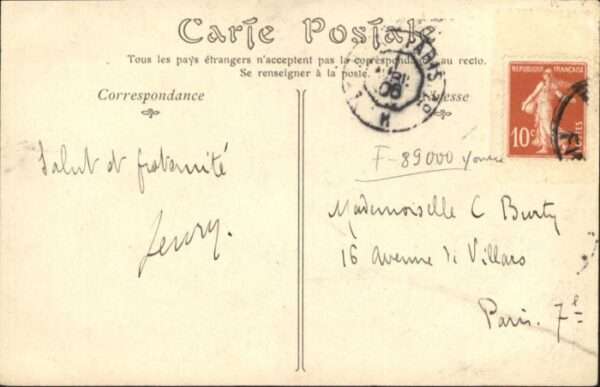 Carte Postale
Tous les pays étrangers n'acceptent pas la correspondance au recto.
Se renseigner à la poste.
Correspondance
Adresse
PARIS
06
REPUBLIQUE FRANÇAISE
10c
POSTES
F-89000 Yonne
Salut et fraternité
Mademoiselle C Burty
16 Avenue de Villars
Paris. 7e